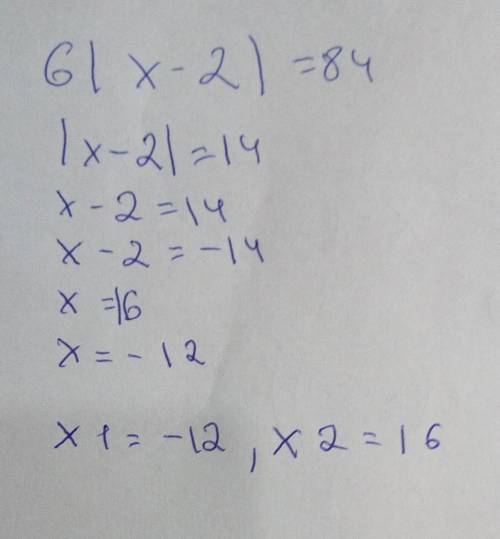 6| x - 2| = 84
|x - 2| = 14
x - 2 = 14
x - 2 = -14
x = 16
x = - 12
x 1 = -12, x 2 = 16